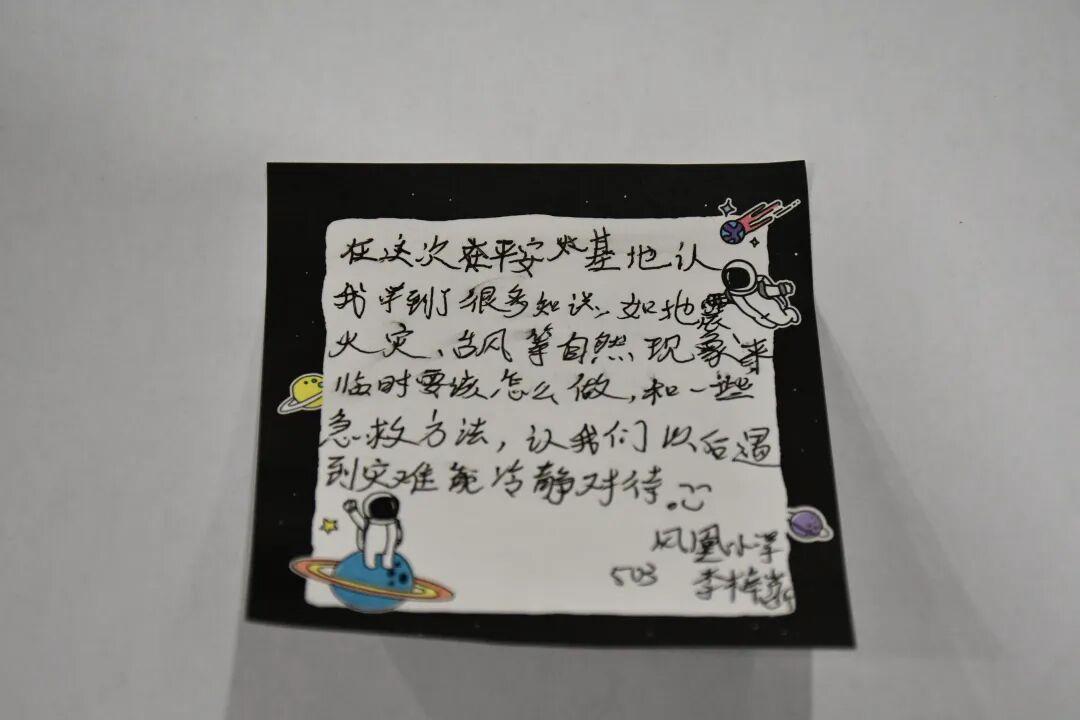 在这次在平安基地认
我学到了很多知识，如地震
火灾、台风等自然现象来
临时要该怎么做，和一些
急救方法，认我们以后遇
到灾难能冷静对待。
凤凰小学
503 李梓